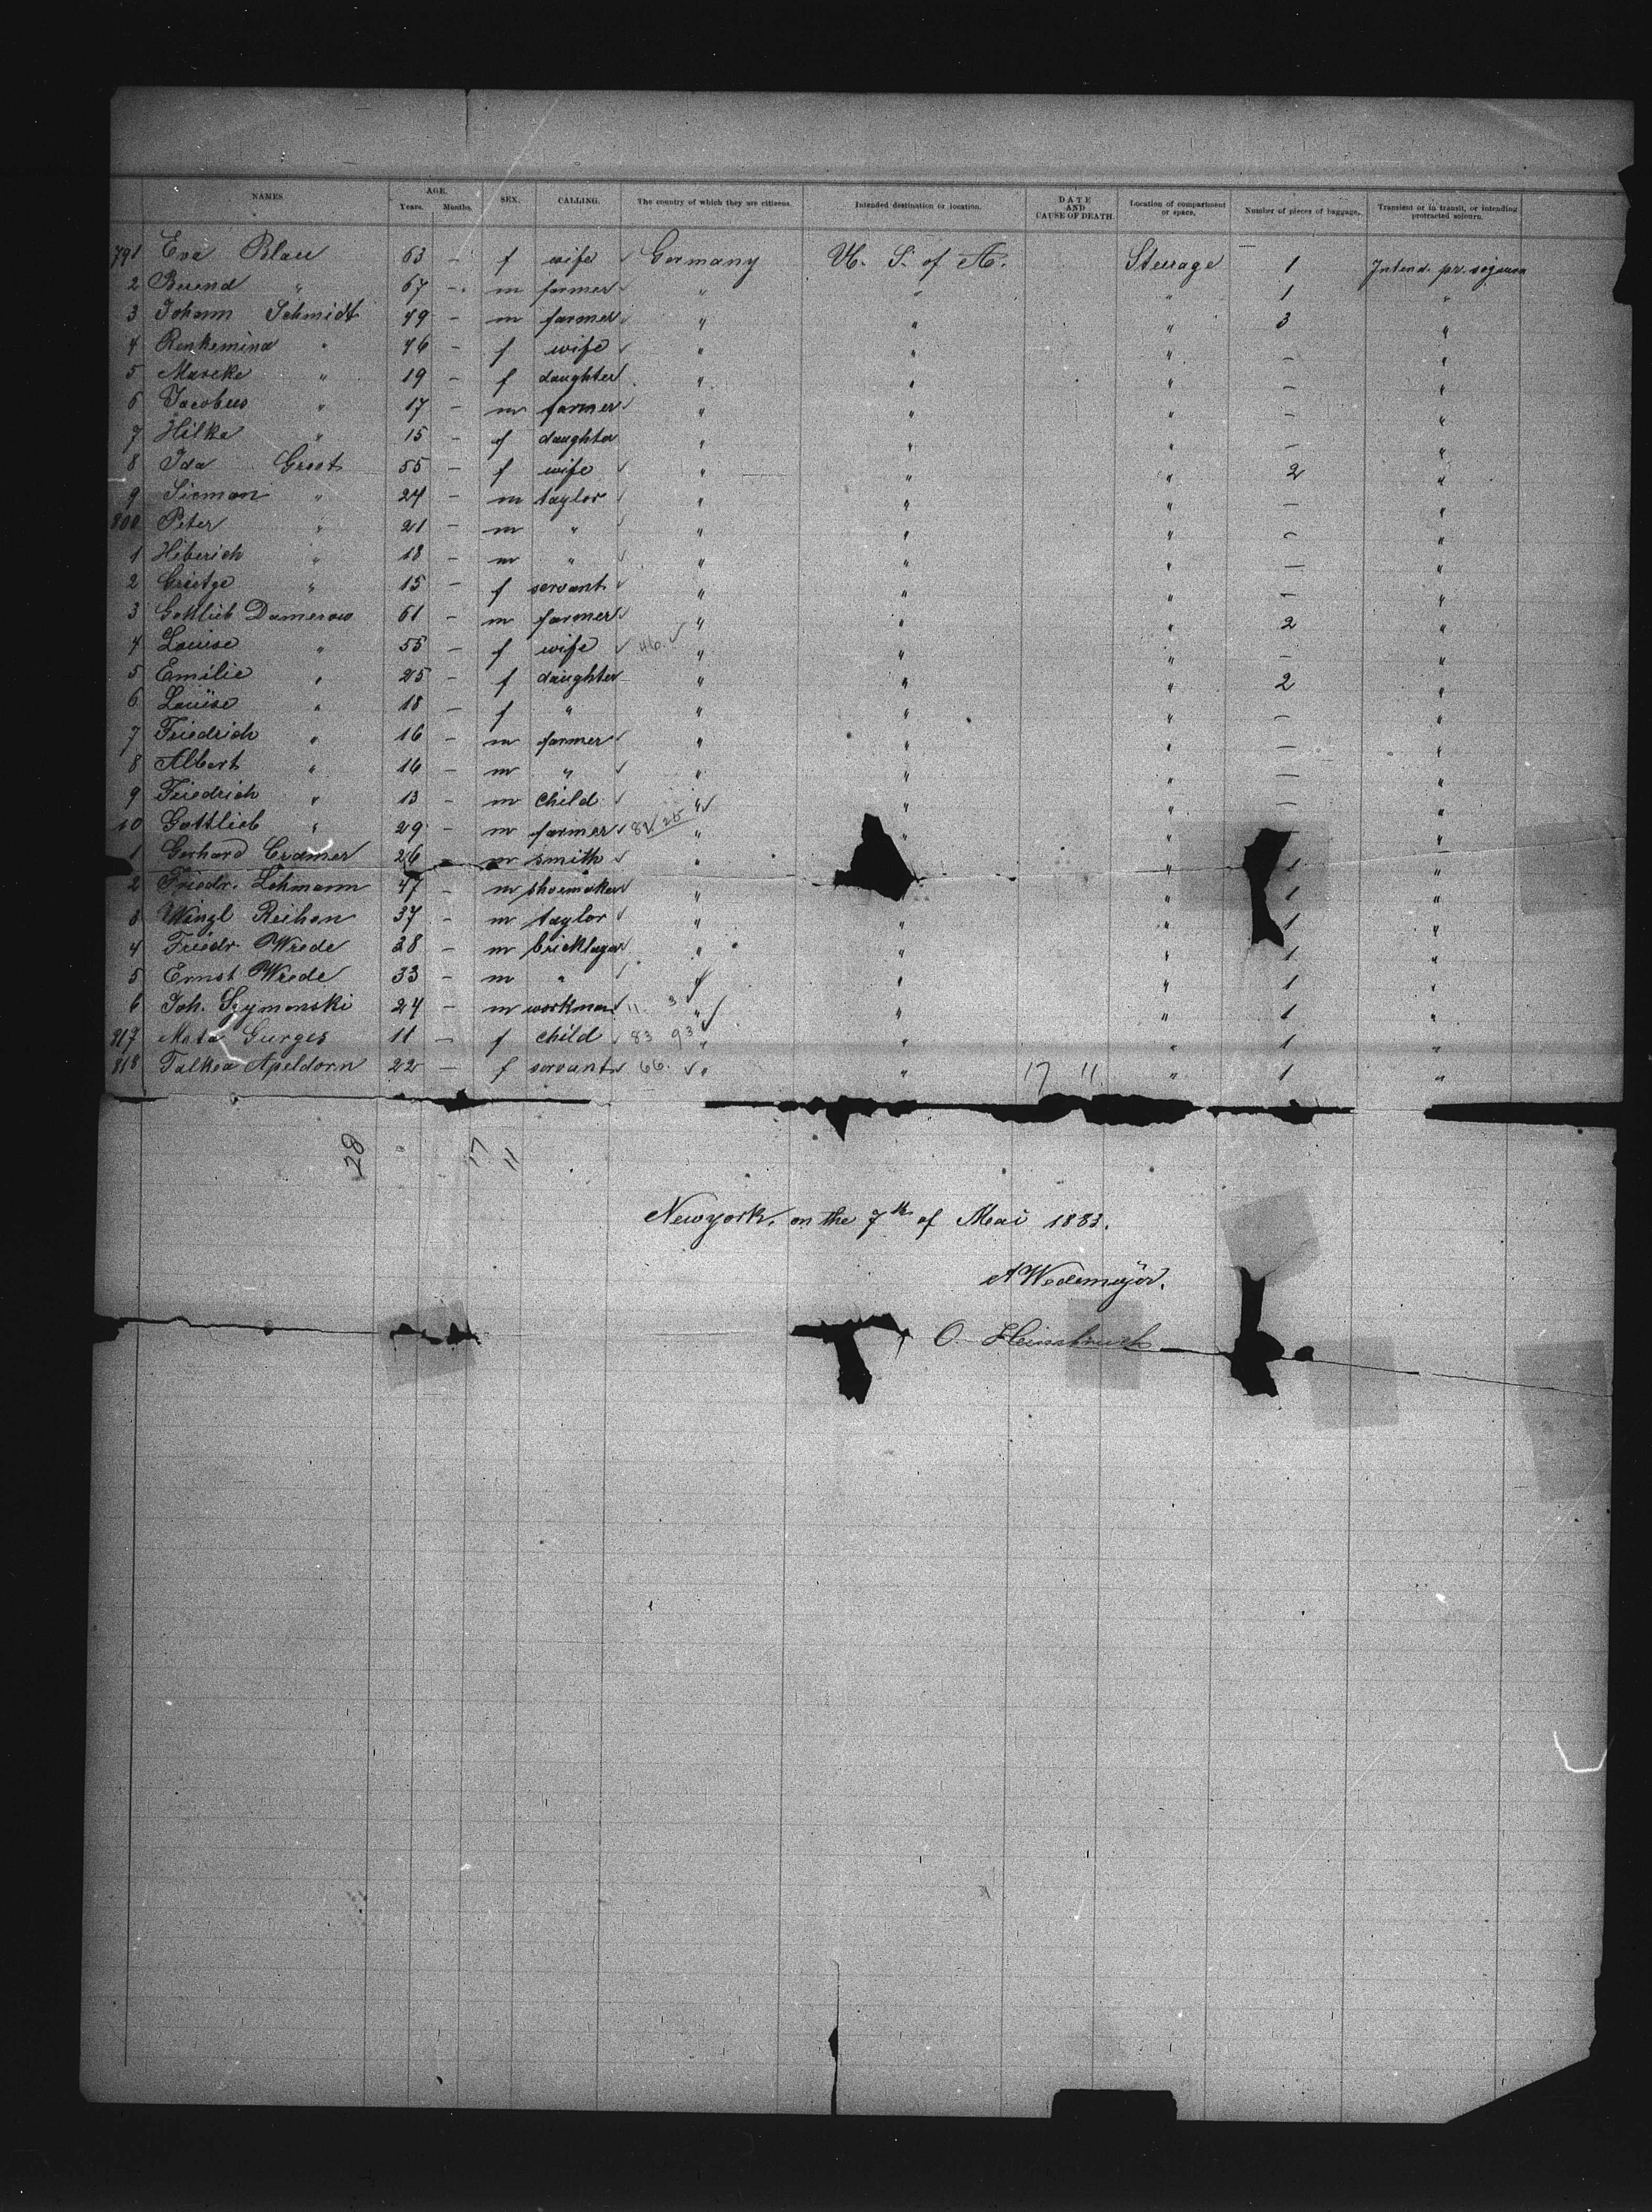 NAMES AGE. Years. Months. SEX. CALLING. The country of which they are citizens. Intended destination or location. DATE AND CAUSE OF DEATH. Location of compartment or space. Number of pieces of baggage. Transient or in transit, or intending protracted sojourn.
791 Eva Blau 63 – f wife Germany U. S. of A. Steerage 1 Intend. pr.
2 Berend " 67 – m farmer " " " 1 "
3 Johann Schmidt 49 – m farmer " " " 3 "
4 Renkemina " 46 – f wife " " " – "
5 Mareke " 19 – f daughter " " " – "
6 Jacobus " 17 – m farmer " " " – "
7 Hilke " 15 – f daughter " " " – "
8 Ida Groot 55 – f wife " " " 2 "
9 Sieman " 24 – m taylor " " " – "
800 Peter " 21 – m " " " " – "
1 Hiberich " 18 – m " " " " – "
2 Grietge " 15 – f servant " " " – "
3 Gottlieb Damerow 61 – m farmer " " " 2 "
4 Louise " 55 – f wife 46. " " " – "
5 Emilie " 25 – f daughter " " " 2 "
6 Louise " 18 – f " " " " – "
7 Friedrich " 16 – m farmer " " " – "
8 Albert " 16 – m " " " " – "
9 Friedrich " 13 – m child " " " – "
10 Gottlieb " 29 – m farmer " " " – "
1 Gerhard Cramer 26 – m smith " " 1 "
2 Friedr. Lehmann 47 – m shoemaker " " 1 "
3 Wenzl Reihen 37 – m taylor " " " 1 "
4 Friedr. Wrede 28 – m bricklayer " " " 1 "
5 Ernst Wrede 33 – m " " " " 1 "
6 Joh. Szymanski 24 – m workman 11. 3 " " " 1 "
817 Meta Gurges 11 – f child 83 93 " " " 1 "
818 Talkea Apeldorn 22 – f servant 66. " " 17 11 " 1 "
28 17 11
Newyork, on the 7th of Mai 1883.
A Wedemeyer.
O. Heimbruch